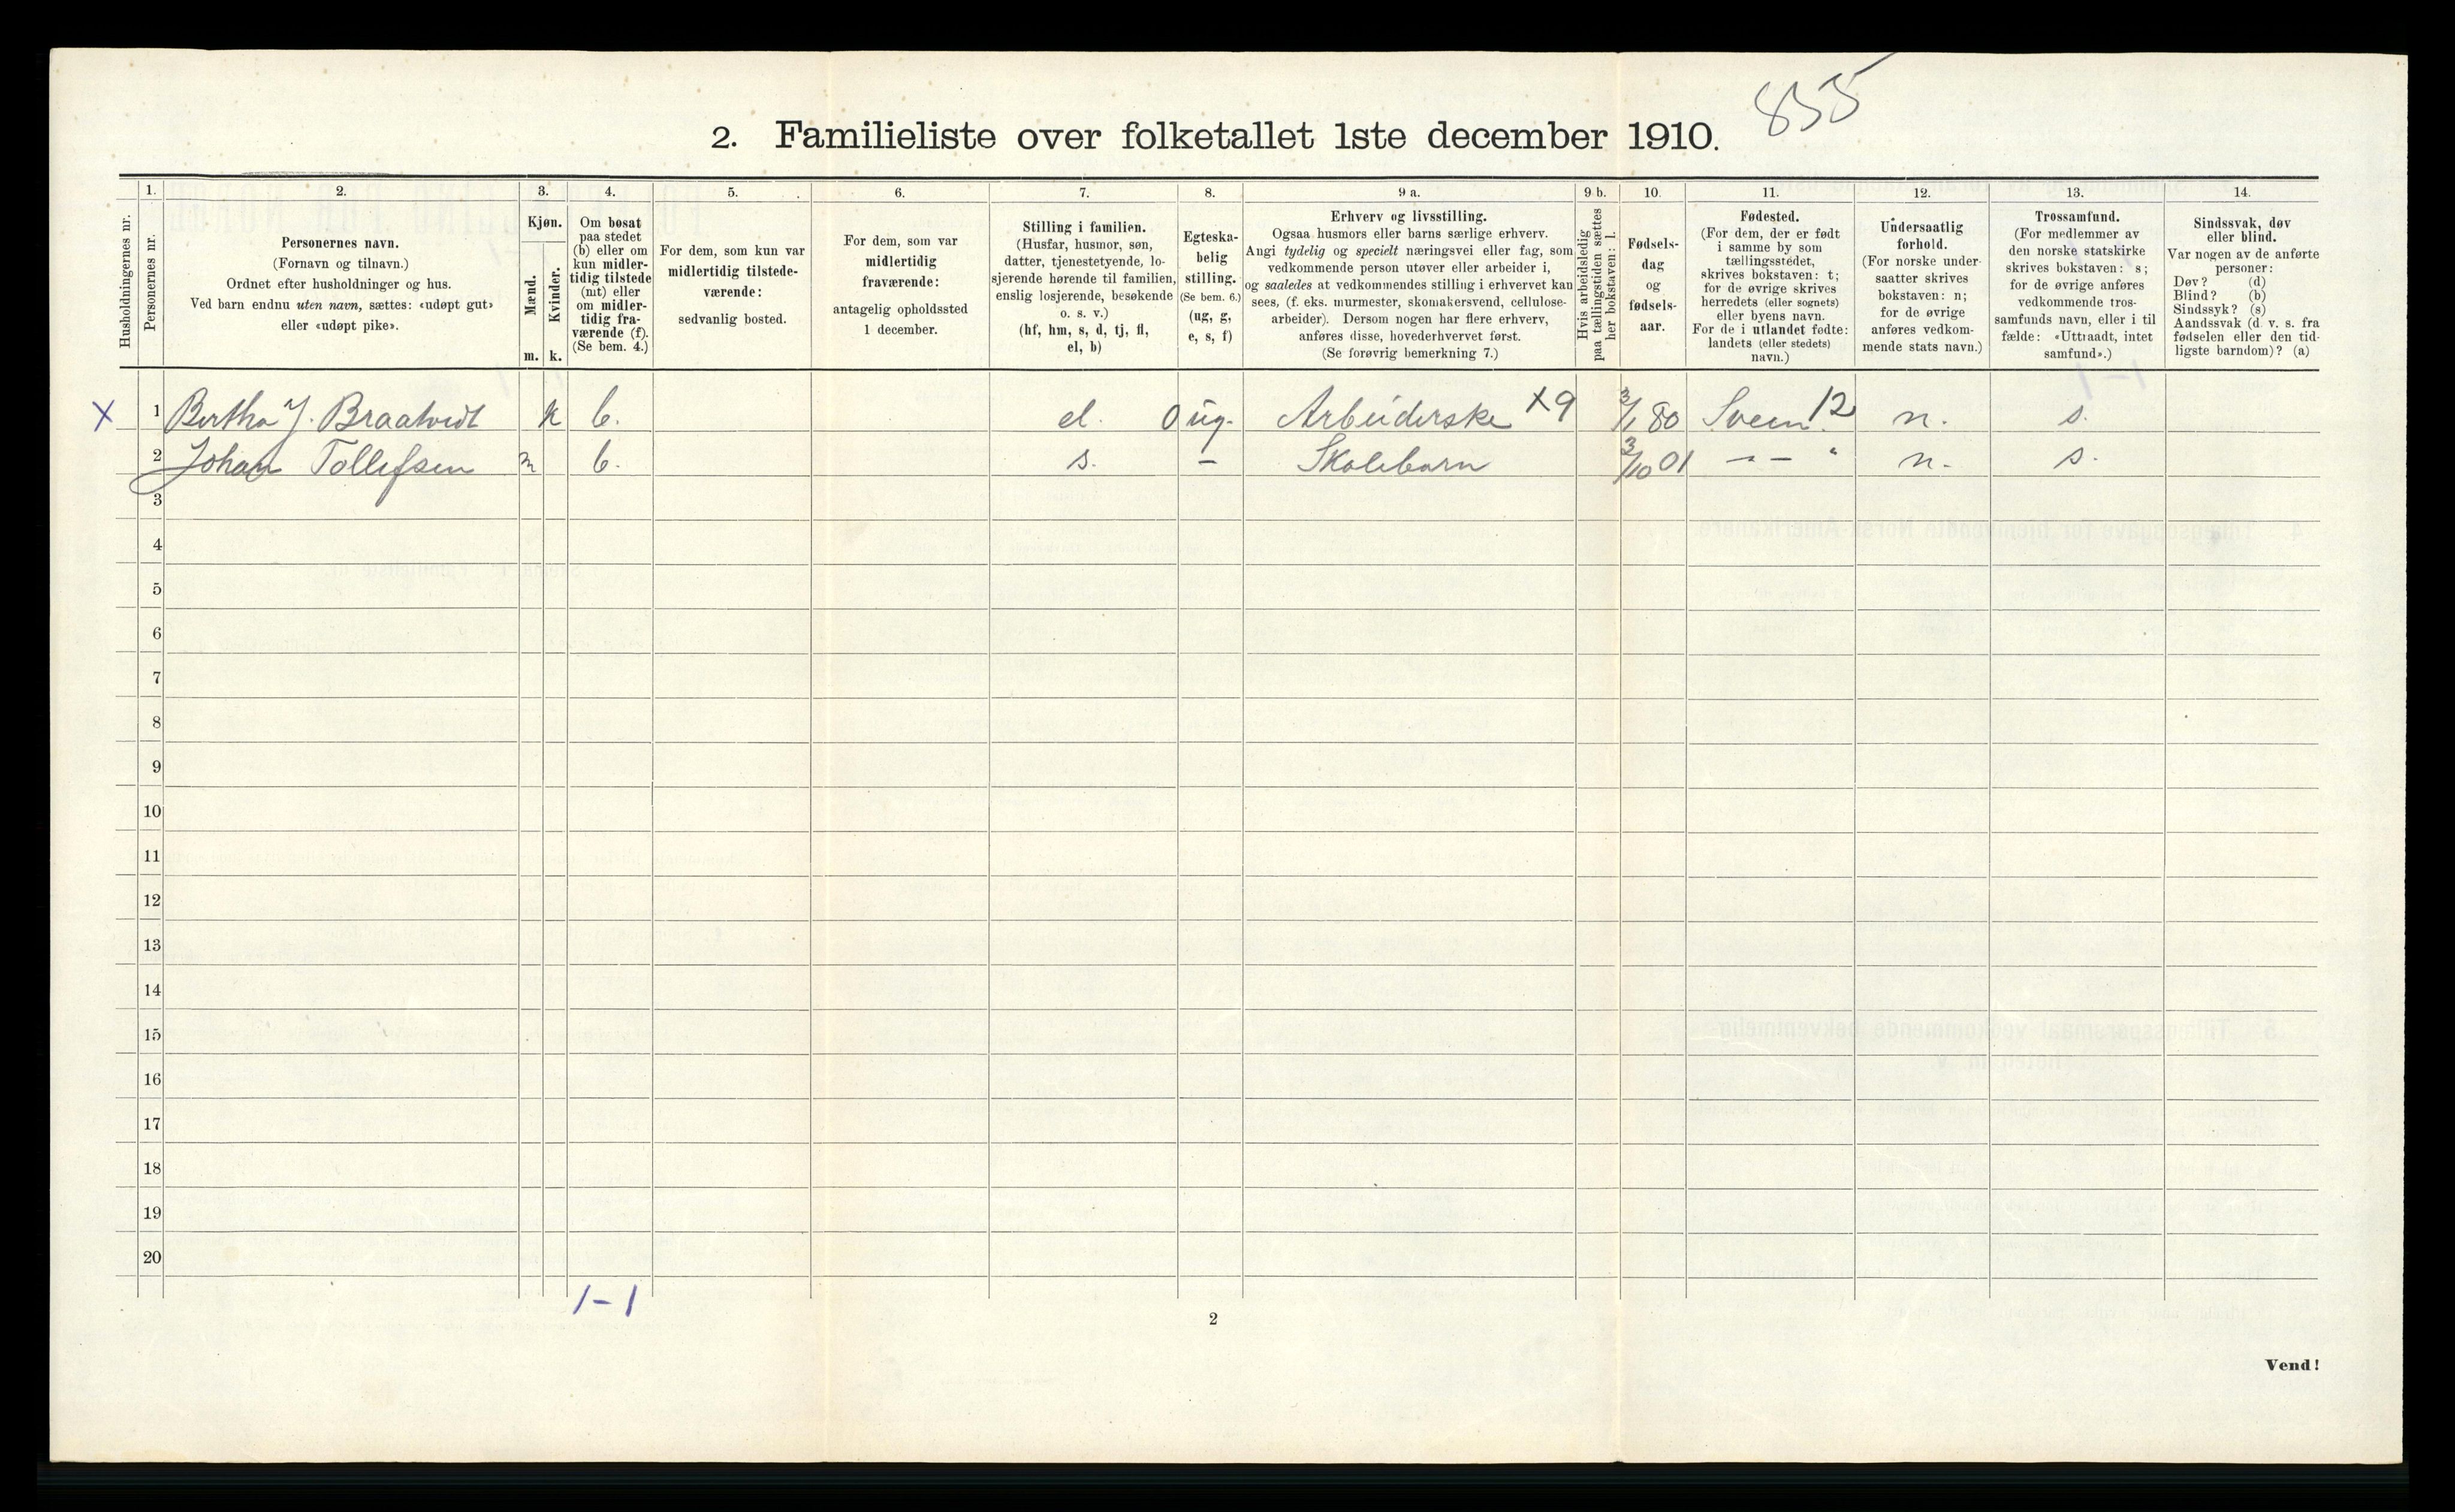 855
2. Familieliste over folketallet 1ste december 1910.
Husholdningernes nr.
1.
Personernes nr.
2.
Personernes navn.
(Fornavn og tilnavn.)
Ordnet efter husholdninger og hus.
Ved barn endnu uten navn, sættes: «udøpt gut»
eller «udøpt pike».
3.
Kjøn.
Mænd.
Kvinder.
m. k.
4.
Om bosat
paa stedet
(b) eller om
kun midler-
tidig tilstede
(mt) eller
om midler-
tidig fra-
værende (f).
(Se bem. 4.)
5.
For dem, som kun var
midlertidig tilstede-
værende:
sedvanlig bosted.
6.
For dem, som var
midlertidig
fraværende:
antagelig opholdssted
1 december.
7.
Stilling i familien.
(Husfar, husmor, søn,
datter, tjenestetyende, lo-
sjerende hørende til familien,
enslig losjerende, besøkende
o. s. v.)
(hf, hm, s, d, tj, fl,
el, b)
8.
Egteska-
belig
stilling.
(Se bem. 6.)
(ug, g,
e, s, f)
9 a.
Erhverv og livsstilling.
Ogsaa husmors eller barns særlige erhverv.
Angi tydelig og specielt næringsvei eller fag, som
vedkommende person utøver eller arbeider i,
og saaledes at vedkommendes stilling i erhvervet kan
sees, (f. eks. murmester, skomakersvend, cellulose-
arbeider). Dersom nogen har flere erhverv,
anføres disse, hovederhvervet først.
(Se forøvrig bemerkning 7.)
9 b.
Hvis arbeidsledig
paa tællingstiden sættes
her bokstaven: l.
10.
Fødsels-
dag
og
fødsels-
aar.
11.
Fødested.
(For dem, der er født
i samme by som
tællingsstedet,
skrives bokstaven: t;
for de øvrige skrives
herredets (eller sognets)
eller byens navn.
For de i utlandet fødte:
landets (eller stedets)
navn.)
12.
Undersaatlig
forhold.
(For norske under-
saatter skrives
bokstaven: n;
for de øvrige
anføres vedkom-
mende stats navn.)
13.
Trossamfund.
(For medlemmer av
den norske statskirke
skrives bokstaven: s;
for de øvrige anføres
vedkommende tros-
samfunds navn, eller i til
fælde: «Uttraadt, intet
samfund».)
14.
Sindssvak, døv
eller blind.
Var nogen av de anførte
personer:
Døv? (d)
Blind? (b)
Sindssyk? (s)
Aandssvak (d. v. s. fra
fødselen eller den tid-
ligste barndom)? (a)
X 1 Bertha J. Braatvedt k b. el. 0 ug. Arbeiderske X9 3/1 80 Sveen. 12 n. s.
2 Johan Tollefsen m b. s. - Skolebarn 3/10 01 - - " n. s.
3
4
5
6
7
8
9
10
11
12
13
14
15
16
17
18
19
20
1-1
2
Vend!